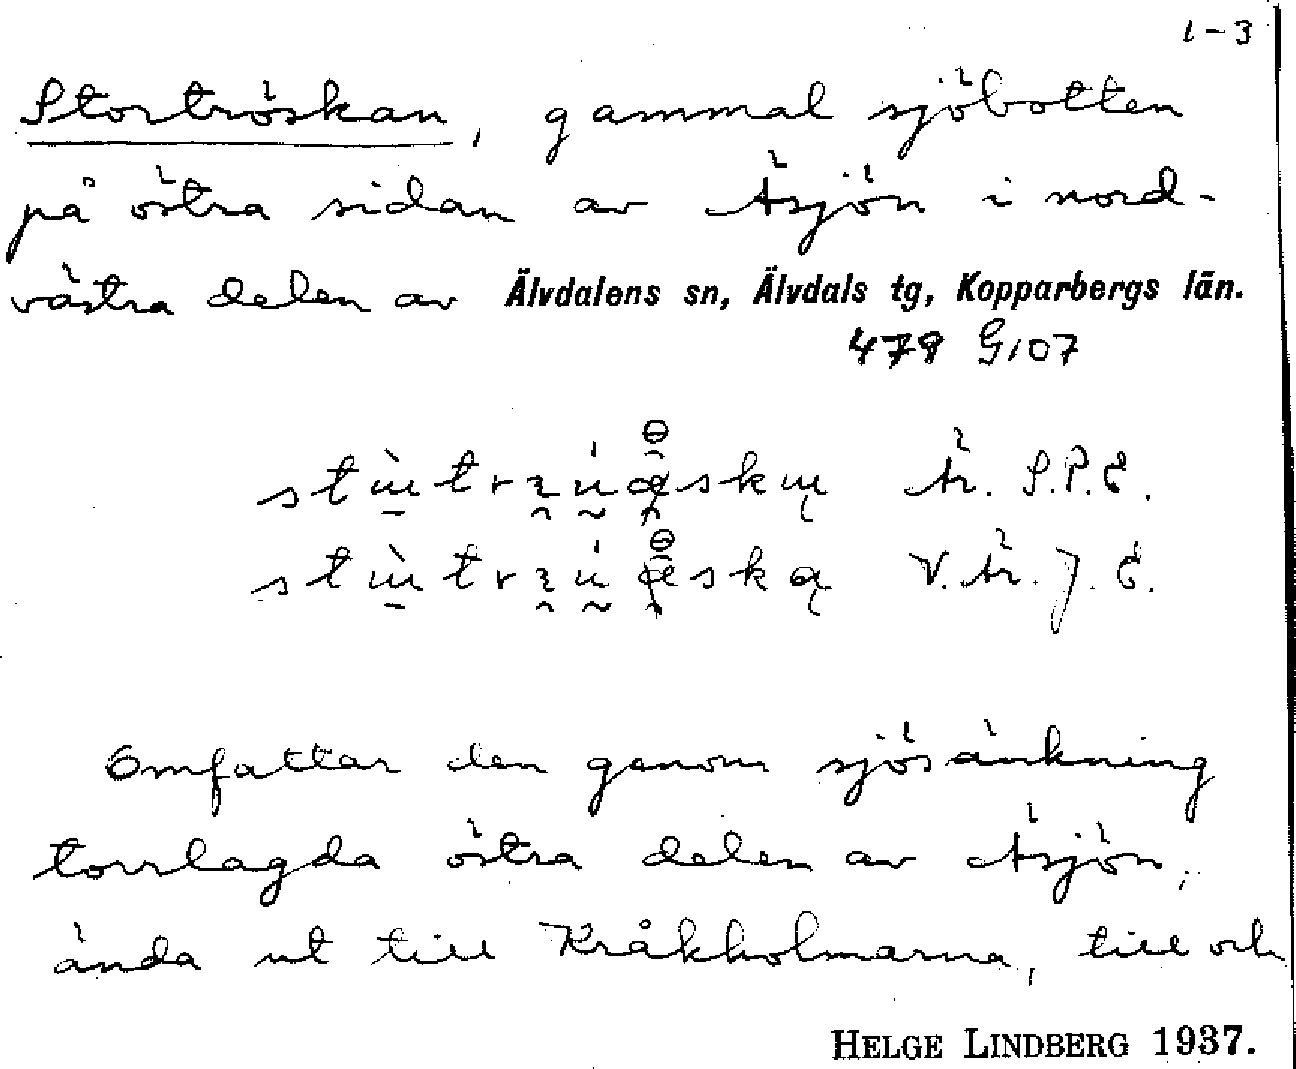 1-3
Storträskan, gammal sjöbotten
på östra sidan av Äsjön i nord-
västra delen av Älvdalens sn, Älvdals tg, Kopparbergs län.
478 G107
Är. S.P.E.
V. Är. J. E.
Omfattar den genom sjösänkning
torrlagda östra delen av Äsjön,
ända ut till Kråkholmarna, till och
HELGE LINDBERG 1937.